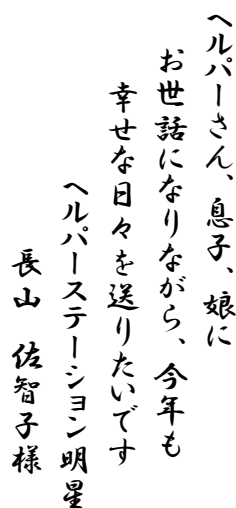 ヘルパーさん、息子、娘に
お世話になりながら、今年も
幸せな日々を送りたいです
ヘルパーステーション明星
長山 佐智子様